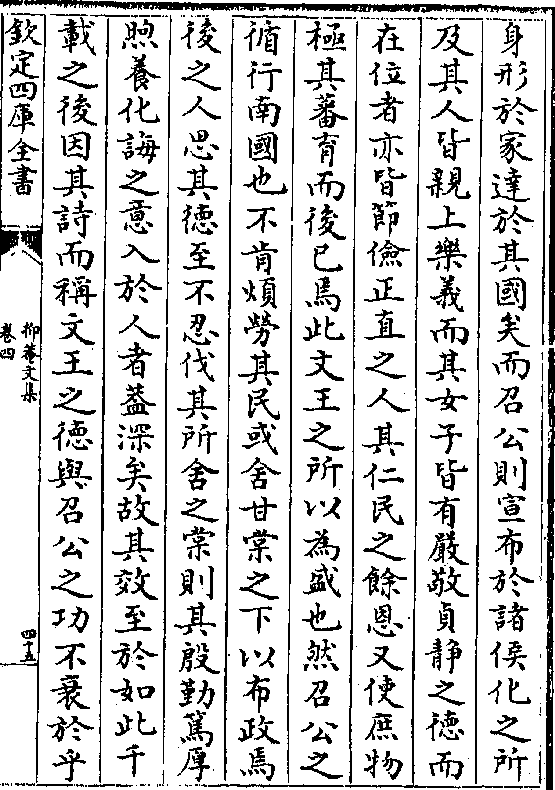 身形於家達於其國矣而召公則宣布於諸侯化之所
及其人皆親上樂義而其女子皆有嚴敬貞靜之德而
在位者亦皆節儉正直之人其仁民之餘恩又使庶物
極其蕃育而後已焉此文王之所以為盛也然召公之
循行南國也不肯煩勞其民或舍甘棠之下以布政焉
後之人思其德至不忍伐其所舍之棠則其殷勤篤厚
煦養化誨之意入於人者葢深矣故其效至於如此千
載之後因其詩而稱文王之德與召公之功不衰於乎
欽定四庫全書
抑菴文集
卷四
四十五